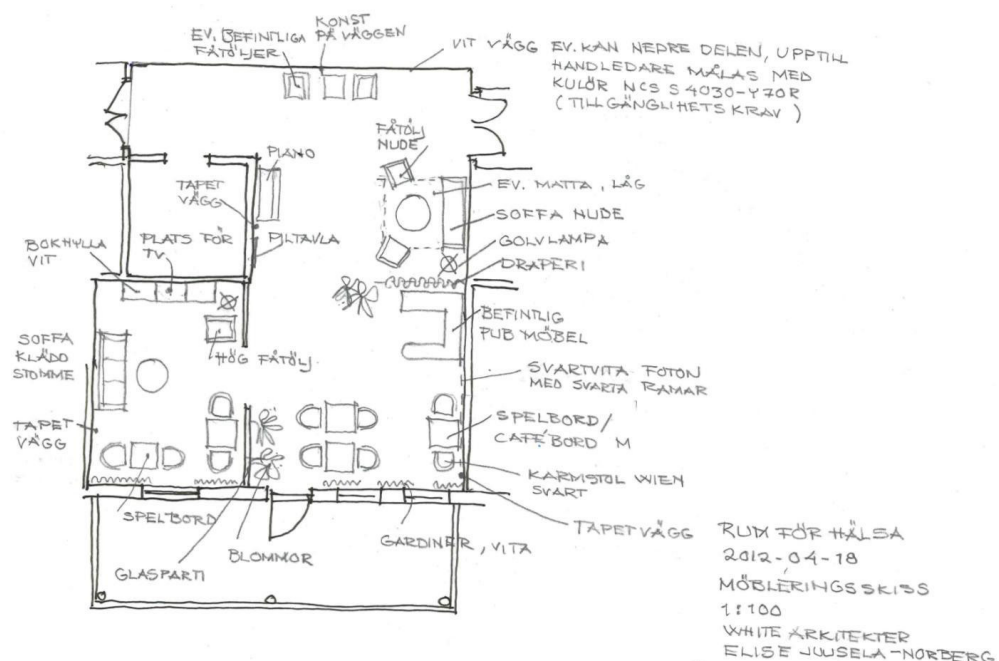 EV. BEFINTLIGA
FÅTÖLJER
KONST
PÅ VÄGGEN
VIT VÄGG EV. KAN NEDRE DELEN, UPPTILL
HANDLEDARE MÅLAS MED
KULÖR NCS S 4030-Y70R
(TILLGÄNGLIHETSKRAV)
FÅTÖLJ
NUDE
PIANO
TAPET
VÄGG
EV. MATTA, LÅG
SOFFA NUDE
GOLVLAMPA
DRAPERI
BOKHYLLA
VIT
PLATS FÖR
TV
PILTAVLA
BEFINTLIG
PUB MÖBEL
SOFFA
KLÄDD
STOMME
HÖG FÅTÖLJ
SVARTVITA FOTON
MED SVARTA RAMAR
TAPET
VÄGG
SPELBORD/
CAFÉBORD M
KARMSTOL WIEN
SVART
SPELBORD
GLASPARTI
BLOMMOR
GARDINER, VITA
TAPETVÄGG
RUM FÖR HÄLSA
2012-04-18
MÖBLERINGSSKISS
1:100
WHITE ARKITEKTER
ELISE JUUSELA-NORBERG